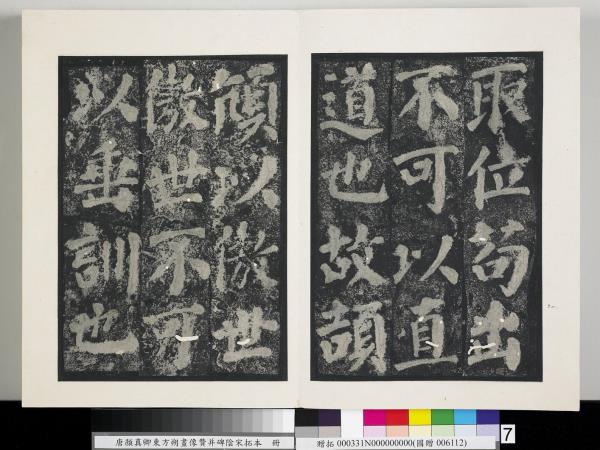 取位苟出
不可以直
道也故頡
頏以傲世
傲世不可
以垂訓也
唐顏真卿東方朔畫像贊并碑陰宋拓本 冊
贈拓 000331N000000000(國贈 006112)
7